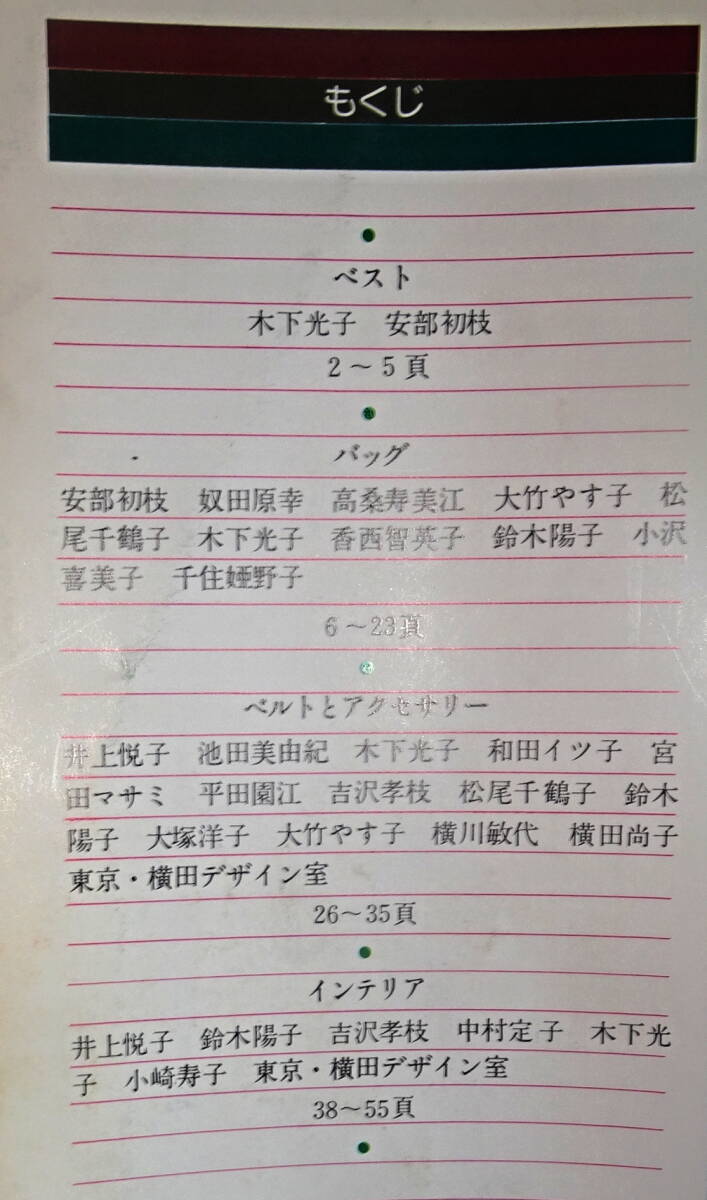 もくじ
ベスト
木下光子 安部初枝
2～5頁
バッグ
安部初枝 奴田原幸 高桑寿美江 大竹やす子 松
尾千鶴子 木下光子 香西智英子 鈴木陽子 小沢
喜美子 千住娙野子
6～23頁
ベルトとアクセサリー
井上悦子 池田美由紀 木下光子 和田イツ子 宮
田マサミ 平田園江 吉沢孝枝 松尾千鶴子 鈴木
陽子 大塚洋子 大竹やす子 横川敏代 横田尚子
東京・横田デザイン室
26～35頁
インテリア
井上悦子 鈴木陽子 吉沢孝枝 中村定子 木下光
子 小崎寿子 東京・横田デザイン室
38～55頁